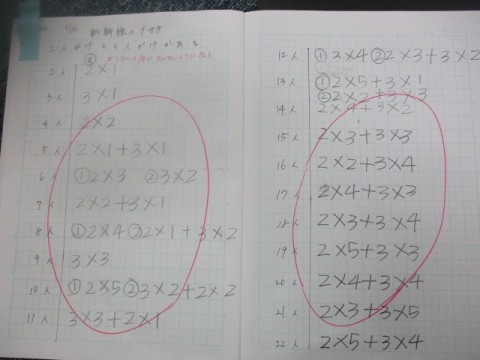 新幹線のざせき
2人がけと3人がけがある
2人 2×1
3人 3×1
4人 2×2
5人 2×1+3×1
6人 ①2×3 ②3×2
7人 2×2+3×1
8人 ①2×4 ②2×1+3×2
9人 3×3
10人 ①2×5 ②3×2+2×2
11人 3×3+2×1
12人 ①3×4 ②2×3+3×2
13人 ①2×5+3×1
②2×2+3×3
14人 2×4+3×2
15人 2×3+3×3
16人 2×2+3×4
17人 2×4+3×3
18人 2×3+3×4
19人 2×5+3×3
20人 2×4+3×4
21人 2×3+3×5
22人 2×5+3×4